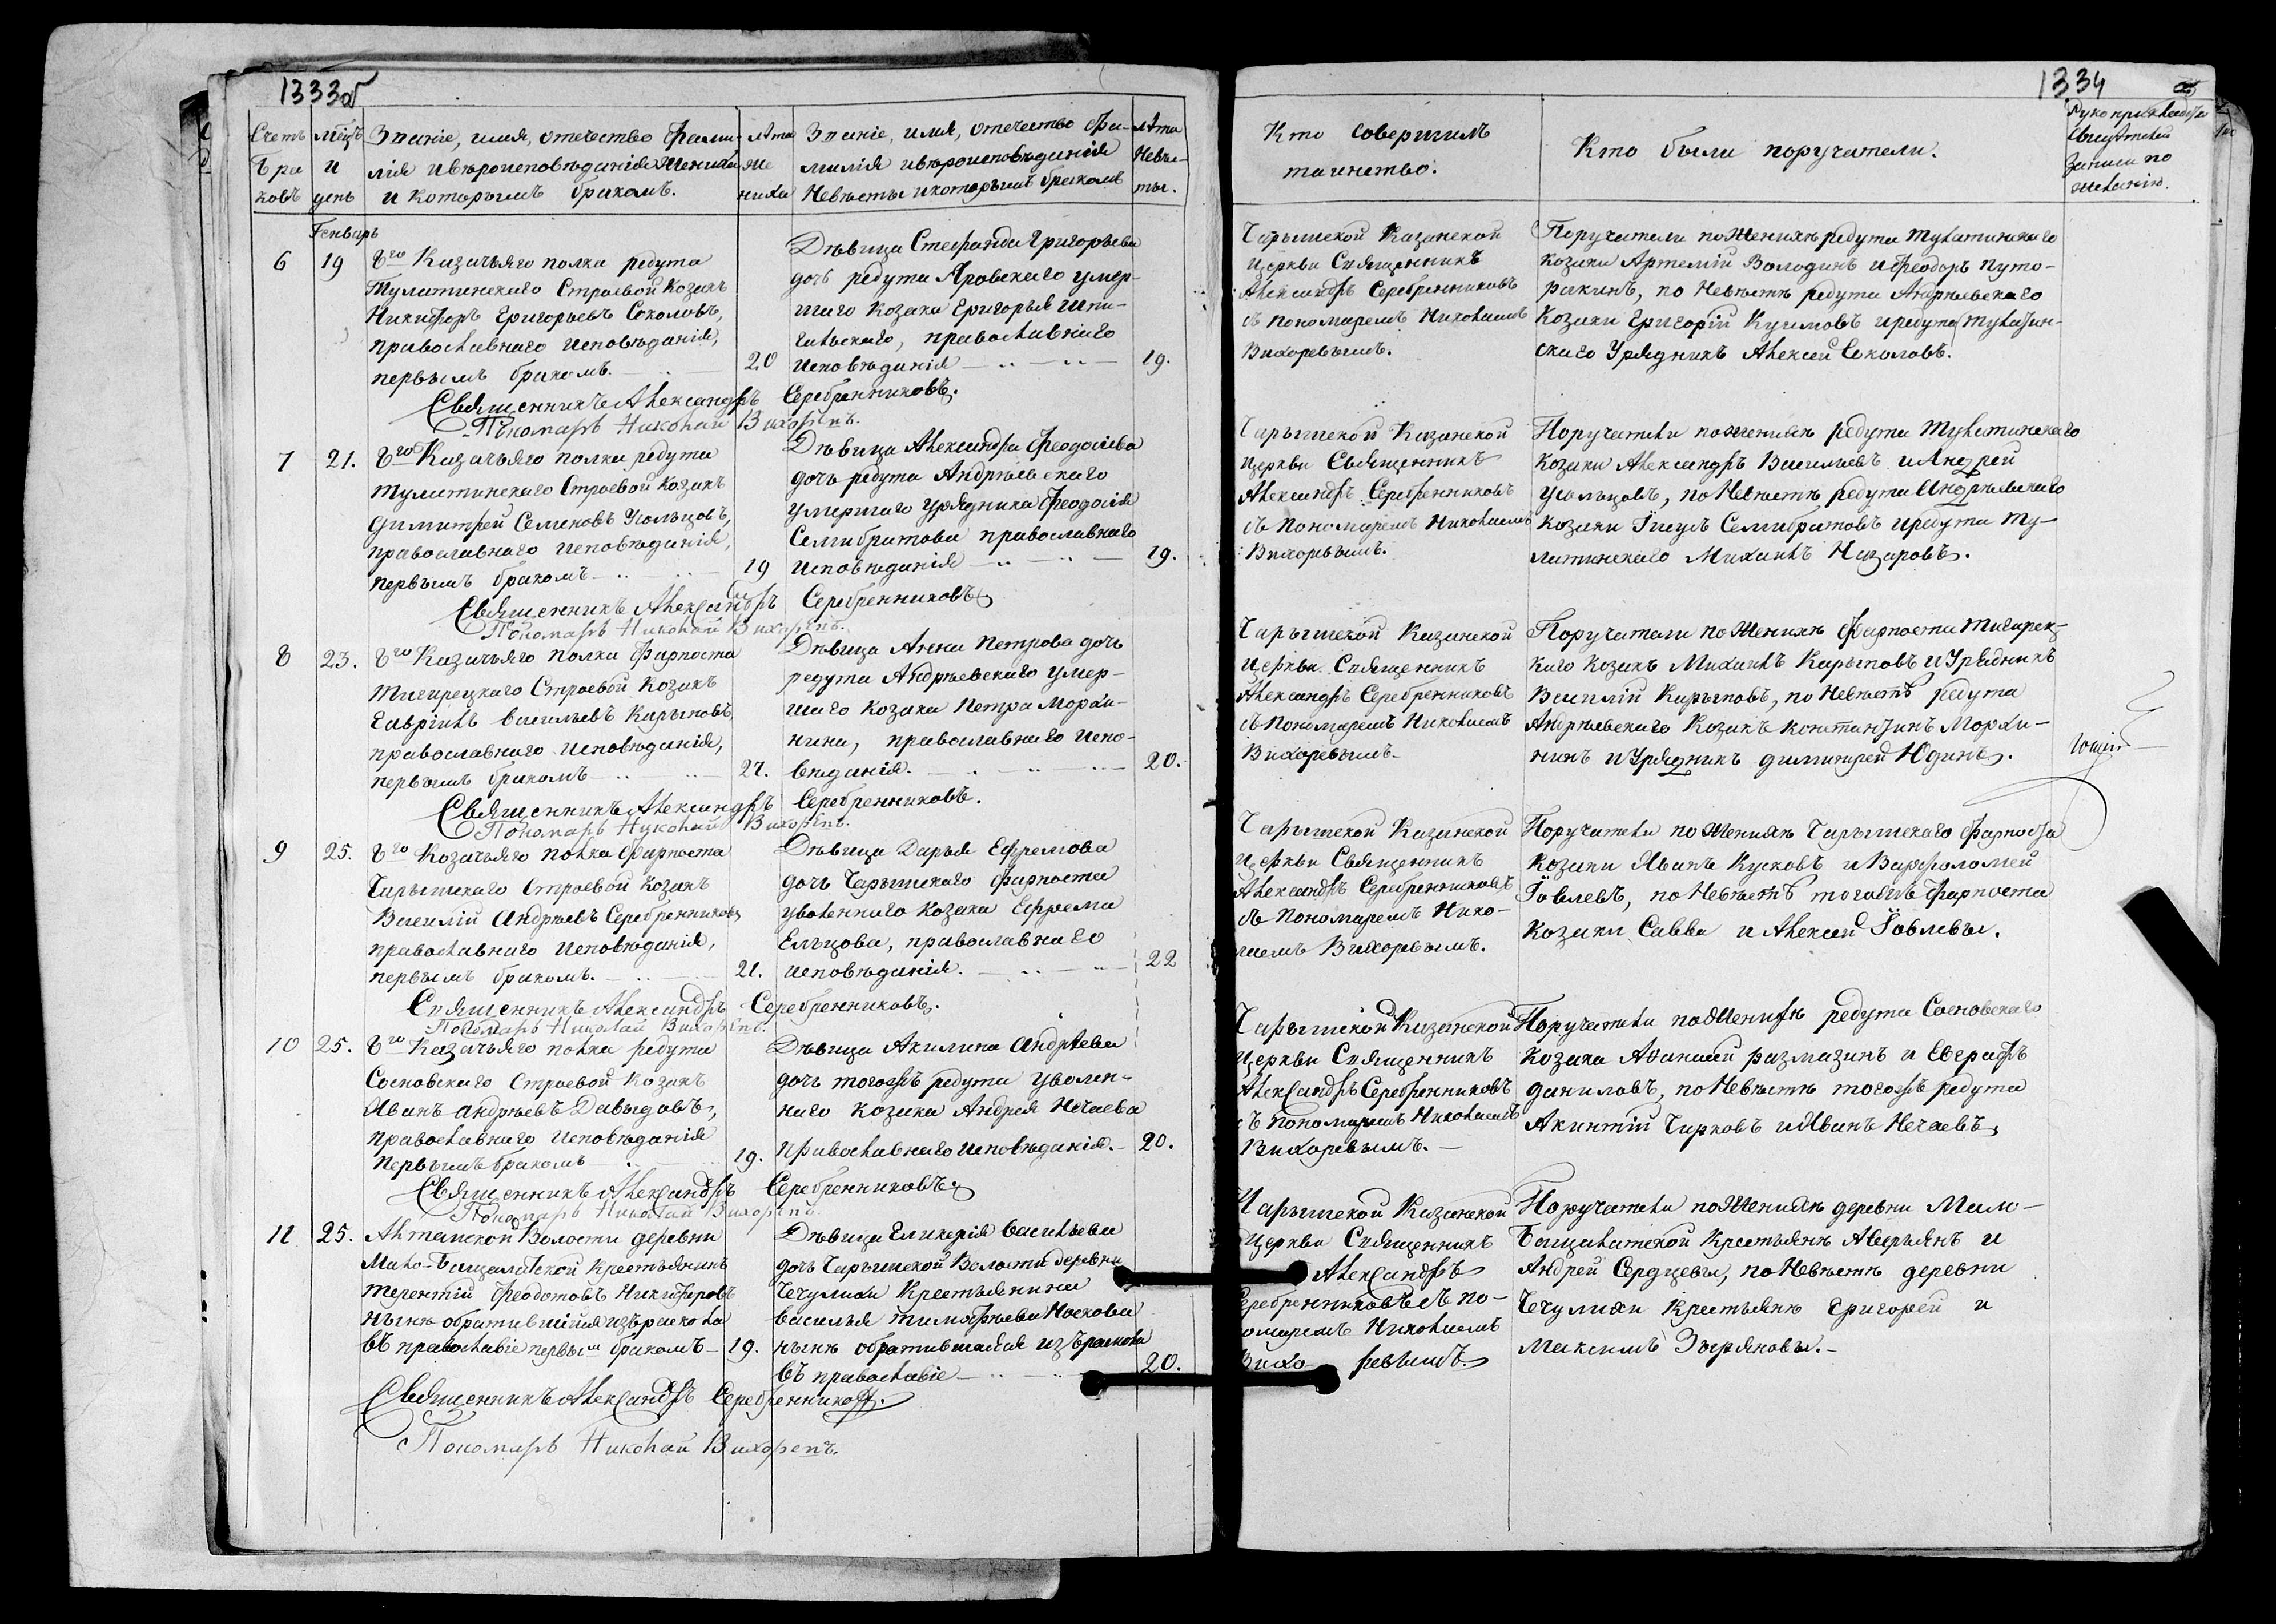 1333об
Счетъ браковъ
Мѣсцъ и день
Званіе, имя, отечество фами-
лія и вѣроисповѣданія Жениха
и которымъ бракомъ.
Лѣта Жениха
Званіе, имя, отечество Фа-
милія и вѣроисповѣданія
Невѣсты и которымъ бракомъ
Лѣта Невѣсты.
Генварь
6
19
8го Казачьяго полка редута
Тулатинскаго Строевой Козакъ
Никифоръ Григорьевъ Соколовъ,
православнаго исповѣданія,
первымъ бракомъ.
20
Дѣвица Стефанида Григорьева
дочь редута Яровскаго умер-
шаго Козака Григорья
православнаго
исповѣданія
19.
Священникъ Александръ Серебренниковъ.
Пономарь Николай Вихоревъ.
7
21.
8го Казачьяго полка редута
Тулатинскаго Строевой Козакъ
Димитрей Семеновъ Усольцовъ,
православнаго исповѣданія,
первымъ бракомъ
19
Дѣвица Александра Феодосіева
дочь редута Андрѣевскаго
умершаго Урядника Феодосія
Семибратова православнаго
исповѣданія
19.
Священникъ Александръ Серебренниковъ
Пономарь Николай Вихоревъ.
8
23.
8го Казачьяго полка Фарпоста
Тигирецкаго Строевой Козакъ
Гавріилъ Васильевъ Карыповъ
православнаго исповѣданія,
первымъ бракомъ
Дѣвица Анна Петрова дочь
редута Андрѣевскаго умер-
шаго Козака Петра Морхи-
нина, православнаго испо-
вѣданія.
20.
Священникъ Александръ Серебренниковъ.
Пономарь Николай Вихоревъ.
9
25.
8го Козачьяго полка Фарпоста
Чарышскаго Строевой Козакъ
Василій Андрѣевъ Серебренниковъ
православнаго исповѣданія,
первымъ бракомъ.
21.
Дѣвица Дарья Ефремова
дочь Чарышскаго фарпоста
уволеннаго Козака Ефрема
Ельцова, православнаго
исповѣданія.
22
Священникъ Александръ Серебренниковъ.
Пономарь Николай Вихоревъ.
10
25.
8го Казачьяго полка редута
Сосновскаго Строевой Козакъ
Иванъ Андрѣевъ Давыдовъ,
православнаго исповѣданія
первымъ бракомъ
19.
Дѣвица Акилина Андрѣева
дочь тогожъ редута уволен-
наго козака Андрея Нечаева
православнаго исповѣданія.
20.
Священникъ Александръ Серебренниковъ
Пономарь Николай Вихоревъ.
11
25.
Алтайской Волости деревни
Мало-Бащалатской Крестьянинъ
Терентій Феодотовъ Никифоровъ
нынѣ обратившійся изъ раскола
въ православіе первымъ бракомъ
19.
Дѣвица Гликерія Васильева
дочь Чарышской Волости деревни
Чечулихи Крестьянина
Василья Тимофѣева Носкова
нынѣ обратившаяся изъ раскола
въ православіе
20.
Священникъ Александръ Серебренниковъ.
Пономарь Николай Вихоревъ.
1334
Кто совершилъ
таинство.
Кто были поручатели.
Рукоприкладства
Свидѣтелей
Записи по
желанію.
Чарышской Казанской
Церкви Священникъ
Александръ Серебренниковъ
съ пономаремъ Николаемъ
Вихоревымъ.
Поручатели по Женихѣ редута Тулатинскаго
Козаки Артемій Володинъ и Феодоръ Путо-
ракинъ, по Невѣстѣ редута Андрѣевскаго
Козаки Григорій Куимовъ и редута Тулатин-
скаго Урядникъ Алексей Соколовъ.
Чарышской Казанской
Церкви Священникъ
Александръ Серебренниковъ
съ пономаремъ Николаемъ
Вихоревымъ.
Поручатели по женихѣ редута Тулатинскаго
Козаки Александръ Васильевъ и Андрей
Усольцовъ, по Невѣстѣ редута Андрѣевскаго
Козаки Іисуъ Семибратовъ и редута Ту-
латинскаго Михаилъ Назаровъ.
Чарышской Казанской
Церкви Священникъ
Александръ Серебренниковъ
съ пономаремъ Николаемъ
Вихоревымъ
Поручатели по Женихѣ Фарпоста Тигирец-
каго Козакъ Михаилъ Карыповъ и Урядникъ
Василій Карыповъ, по Невѣстѣ редута
Андрѣевскаго Козакъ Константинъ Морхи-
нинъ и Урядникъ Димитрей Юдинъ.
Чарышской Казанской
Церкви Священникъ
Александръ Серебренниковъ
съ Пономаремъ Нико-
лаемъ Вихоревымъ.
Поручатели по Женихѣ Чарышскаго Фарпоста
Козаки Иванъ Кусковъ и Варфоломей
Іовлевъ, по Невѣстѣ тогожъ Фарпоста
Козаки Савва и Алексей Іовлевы.
Чарышской Казанской
Церкви Священникъ
Александръ Серебренниковъ
съ пономаремъ Николаемъ
Вихоревымъ.
Поручатели по Женихѣ редута Сосновскаго
Козаки Афанасей Размазинъ и Евграфъ
Даниловъ, по Невѣстѣ тогожъ редута
Акинтій Чирковъ и Иванъ Нечаевъ
Чарышской Казанской
Церкви Священникъ
Александръ
Серебренниковъ съ по-
номаремъ Николаемъ
Вихоревымъ
Поручатели по Женихѣ деревни Мало-
Бащалатской Крестьянѣ Аверьянъ и
Андрей Сердцевы, по Невѣстѣ деревни
Чечулихи Крестьянѣ Григорей и
Максимъ Зыряновы.